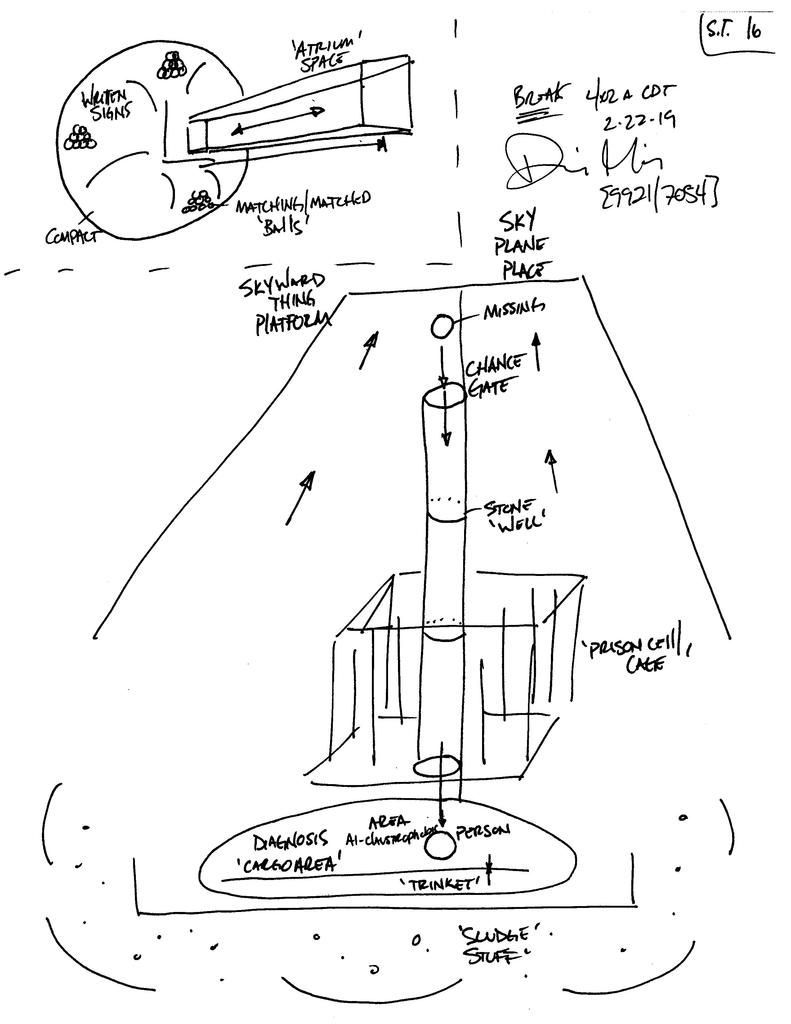 S.T. 16
'ATRIUM'
SPACE
WRITTEN
SIGNS
COMPACT
MATCHING/MATCHED
'BALLS'
BREAK 4X02 A CDT
2-22-19
{9921/7054}
SKY
PLANE
PLACE
SKYWARD
THING
PLATFORM
MISSING
CHANCE
GATE
STONE
'WELL'
'PRISON CELL/,
CAGE
AREA
AI-CLAUSTROPHOBIC
PERSON
DIAGNOSIS
'CARGO AREA'
'TRINKET'
'SLUDGE'
STUFF'